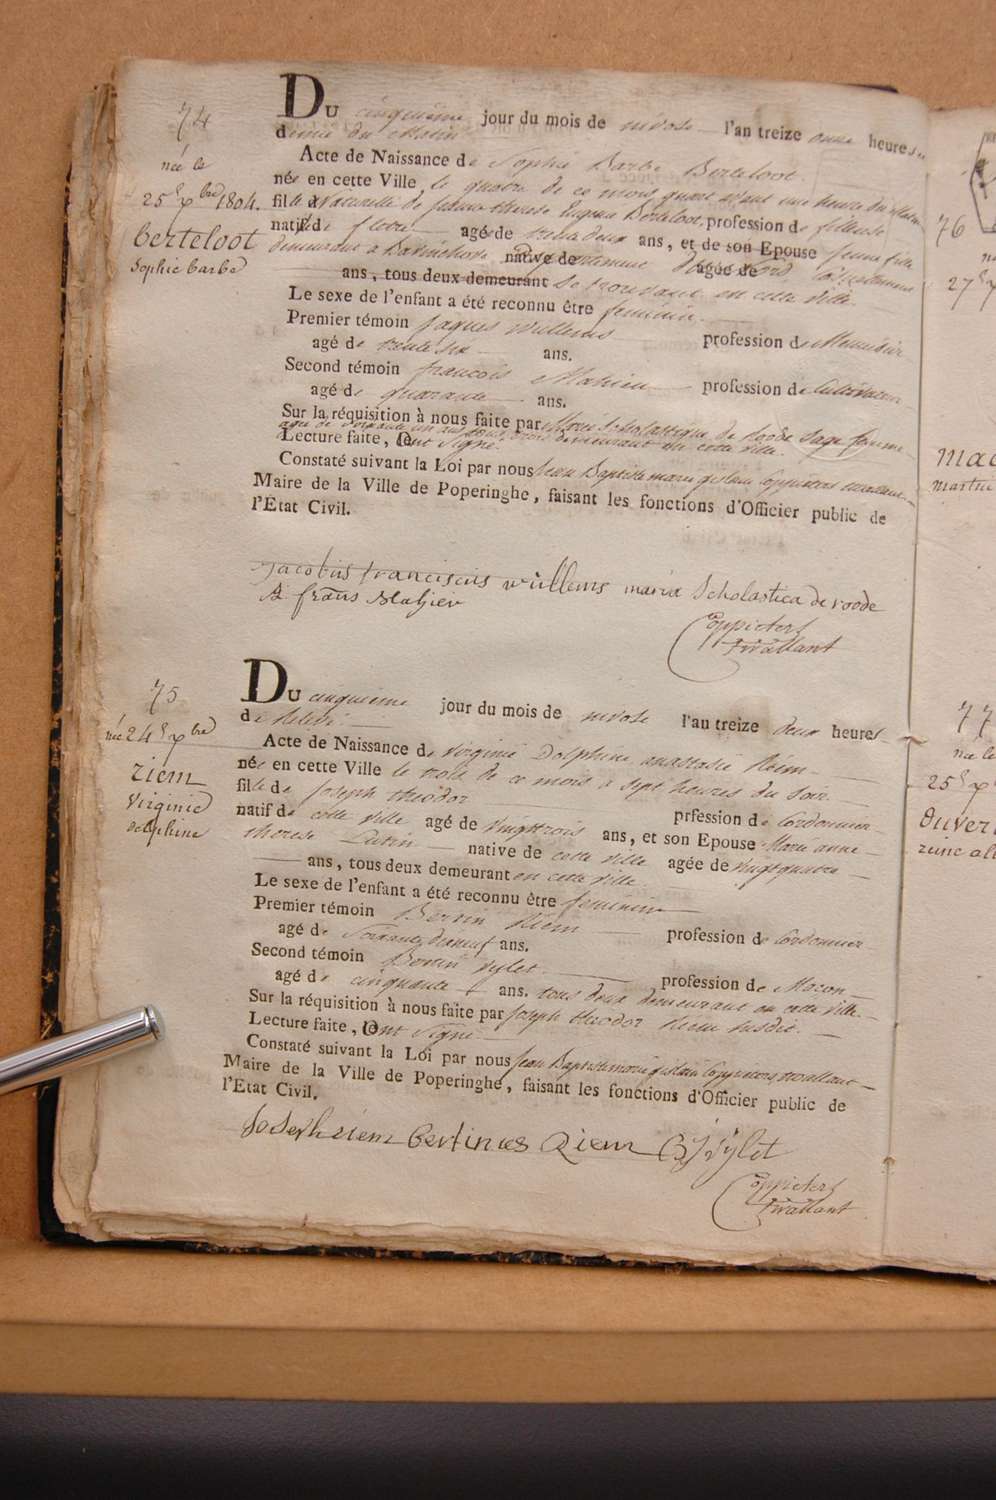 74
née le
25e xbre 1804.
Berteloot
Sophie barbe
Du cinquième jour du mois de nivose l'an treize onze heures
du matin
Acte de Naissance de Sophie Barbe Berteloot
née en cette Ville le quatre de ce mois quart avant une heure du matin
fille naturelle de Jeanne therese Eugenia Berteloot, profession de fileuse
natif de fletre agée de trente deux ans, et de son Epouse jeune fille
demeurant à native de departement agée de Nord
ans, tous deux demeurant se trouvant en cette ville
Le sexe de l'enfant a été reconnu être feminin.
Premier témoin Jaques Willems profession de Menuisier
agé de trente six ans.
Second témoin francois Mahieu profession de Cultivateur
agé de quarante ans.
Sur la réquisition à nous faite par Marie Scholastique de Roode Sage femme
agée de soixante un ans tous trois demeurant en cette ville.
Lecture faite, ont signé.
Constaté suivant la Loi par nous Jean Baptiste marie gislain Coppieters
Maire de la Ville de Poperinghe, faisant les fonctions d'Officier public de
l'Etat Civil.
Jacobus franciscus willems maria Scholastica de roode
frans Mahieu
Coppieters
twallant
75
née 24e xbre
riem
Virginie
delphine
Du cinquième jour du mois de nivose l'an treize deux heures
de relevé
Acte de Naissance de Virginie Delphine anastasie Riem
née en cette Ville le trois de ce mois a sept heures du soir
fille de Joseph theodor prfession de Cordonnier
natif de cette ville agé de vingt trois ans, et son Epouse Marie anne
therese native de cette ville agée de vingt quatre
ans, tous deux demeurant en cette ville
Le sexe de l'enfant a été reconnu être feminin
Premier témoin Bertin Riem profession de Cordonnier
agé de Soixante dixneuf ans.
Second témoin Bertin Sylet profession de Macon
agé de cinquante ans. tous deux demeurant en cette ville.
Sur la réquisition à nous faite par Joseph theodor Riem susdit.
Lecture faite, ont signé
Constaté suivant la Loi par nous Jean Baptiste marie gislain Coppieters twallant
Maire de la Ville de Poperinghe, faisant les fonctions d'Officier public de
l'Etat Civil.
Joseph riem bertinus Riem B J Sylet
Coppieters
twallant
76
27e
martin
77
née le
25e